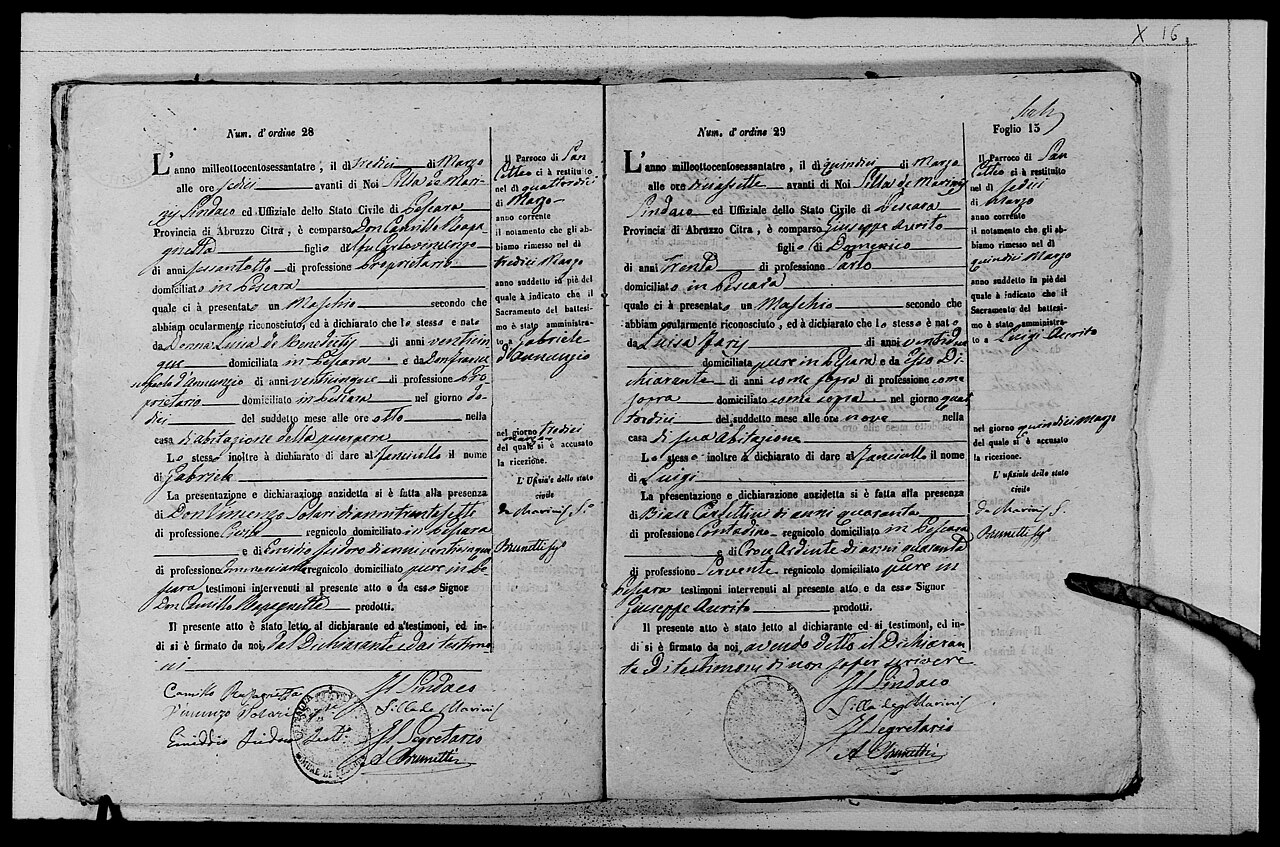 X 16
Num. d'ordine 28
L'anno milleottocentosessantatre, il dì tredici di Marzo
alle ore sedici avanti di Noi Silla de Mari-
nis Sindaco ed Uffiziale dello Stato Civile di Pescara
Provincia di Abruzzo Citra, è comparso Don Camillo Rapa
gnetta figlio di fu
di anni sessantotto di professione proprietario
domiciliato in Pescara
quale ci à presentato un Maschio secondo che
abbiam ocularmente riconosciuto, ed à dichiarato che lo stesso è nato
da Donna Luisa de Benedictis di anni venticin
que domiciliata in Pescara e da Don Francesc
paolo d'Annunzio di anni venticinque di professione pro
prietario domiciliato in Pescara nel giorno do
dici del suddetto mese alle ore otto nella
casa di abitazione della puerpera
Lo stesso inoltre à dichiarato di dare al fanciullo il nome
di Gabriele
La presentazione e dichiarazione anzidetta si è fatta alla presenza
di Don Vincenzo Solari di anni trentasette
di professione regnicolo domiciliato in Pescara
e di Emidio Isidoro di anni
di professione regnicolo domiciliato pure in Pe
scara testimoni intervenuti al presente atto e da esso Signor
Don Camillo Rapagnetta prodotti.
Il presente atto è stato letto al dichiarante ed a' testimoni, ed in-
di si è firmato da noi, dal Dichiarante e dai testimo
ni
Camillo Rapagnetta
Vincenzo Solari
Emiddio Isidoro
Il Sindaco
Silla de Marinis
Il Segretario
A Brunetti
Il Parroco di San
Cetteo ci à restituito
nel dì quattordici
di Marzo
anno corrente
il notamento che gli ab-
biamo rimesso nel dì
tredici Marzo
anno suddetto in piè del
quale à indicato che il
Sacramento del battesi-
mo è stato amministra-
to a Gabriele
d'Annunzio
nel giorno tredici
marzo
del quale si è accusato
la ricezione.
L'Ufiziale dello stato
civile
de Marinis S.
Brunetti
Num. d'ordine 29
L'anno milleottocentosessantatre, il dì quindici di Marzo
alle ore diciassette avanti di Noi Silla de Marinis
Sindaco ed Uffiziale dello Stato Civile di Pescara
Provincia di Abruzzo Citra, è comparso Giuseppe Aurito
figlio di Domenico
di anni trenta di professione Sarto
domiciliato in Pescara
quale ci à presentato un Maschio secondo che
abbiam ocularmente riconosciuto, ed à dichiarato che lo stesso è nato
da Luisa di anni ventidue
domiciliata pure in Pescara e da esso Di
chiarante di anni come sopra di professione come
sopra domiciliato come sopra nel giorno quat
tordici del suddetto mese alle ore nove nella
casa di sua abitazione
Lo stesso inoltre à dichiarato di dare al fanciullo il nome
di Luigi
La presentazione e dichiarazione anzidetta si è fatta alla presenza
di di anni quaranta
di professione Contadino regnicolo domiciliato in Pescara
e di Croce Ardente di anni quaranta
di professione Servente regnicolo domiciliato pure in
Pescara testimoni intervenuti al presente atto e da esso Signor
Giuseppe Aurito prodotti.
Il presente atto è stato letto al dichiarante ed ai testimoni, ed in-
di si è firmato da noi, avendo detto il Dichiaran
te e i testimoni di non saper scrivere
Il Sindaco
Silla de Marinis
Il Segretario
A Brunetti
Foglio 15
Il Parroco di San
Cetteo ci à restituito
nel dì sedici
di Marzo
anno corrente
il notamento che gli ab-
biamo rimesso nel dì
quindici Marzo
anno suddetto in piè del
quale à indicato che il
Sacramento del battesi-
mo è stato amministra-
to a Luigi Aurito
nel giorno quindici Marzo
del quale si è accusato
la ricezione.
L'ufiziale dello stato
civile
de Marinis S.
Brunetti